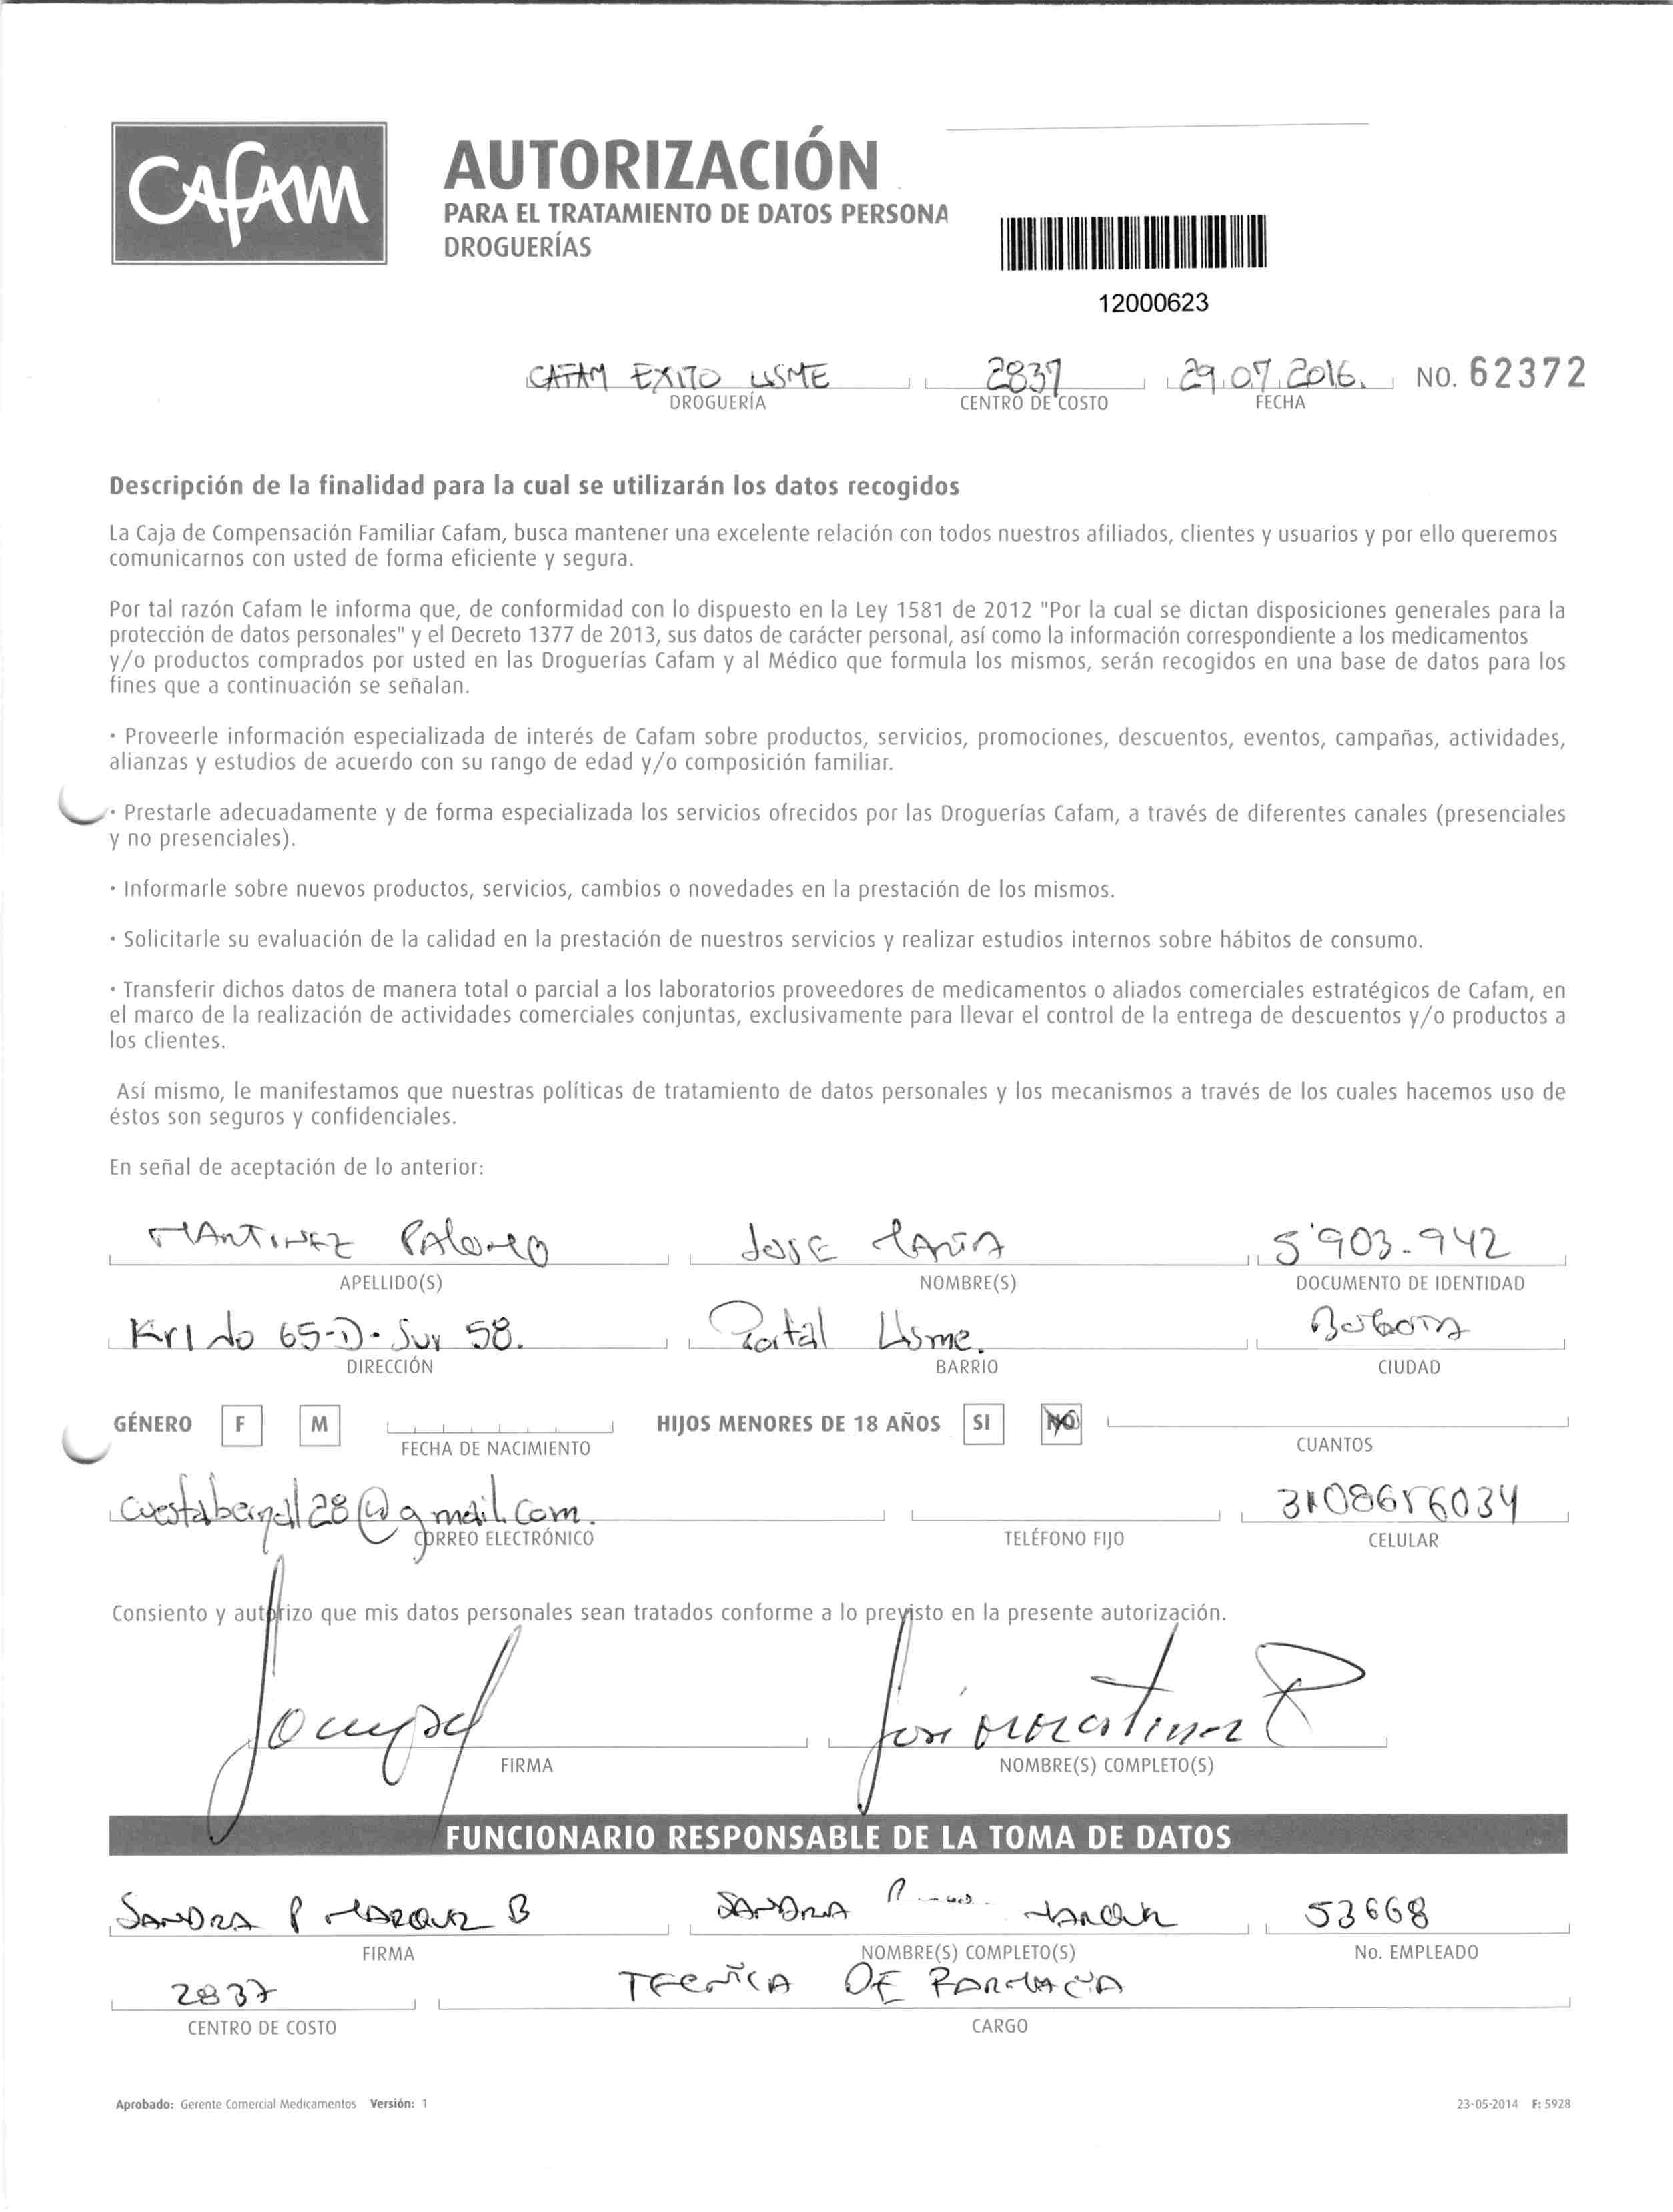 CAFAM
AUTORIZACIÓN
PARA EL TRATAMIENTO DE DATOS PERSONA
DROGUERÍAS
12000623
CAFAM EXITO USME 2837 29.07.2016. NO. 62372
DROGUERÍA CENTRO DE COSTO FECHA
Descripción de la finalidad para la cual se utilizarán los datos recogidos
La Caja de Compensación Familiar Cafam, busca mantener una excelente relación con todos nuestros afiliados, clientes y usuarios y por ello queremos
comunicarnos con usted de forma eficiente y segura.
Por tal razón Cafam le informa que, de conformidad con lo dispuesto en la Ley 1581 de 2012 "Por la cual se dictan disposiciones generales para la
protección de datos personales" y el Decreto 1377 de 2013, sus datos de carácter personal, así como la información correspondiente a los medicamentos
y/o productos comprados por usted en las Droguerías Cafam y al Médico que formula los mismos, serán recogidos en una base de datos para los
fines que a continuación se señalan.
· Proveerle información especializada de interés de Cafam sobre productos, servicios, promociones, descuentos, eventos, campañas, actividades,
alianzas y estudios de acuerdo con su rango de edad y/o composición familiar.
· Prestarle adecuadamente y de forma especializada los servicios ofrecidos por las Droguerías Cafam, a través de diferentes canales (presenciales
y no presenciales).
· Informarle sobre nuevos productos, servicios, cambios o novedades en la prestación de los mismos.
· Solicitarle su evaluación de la calidad en la prestación de nuestros servicios y realizar estudios internos sobre hábitos de consumo.
· Transferir dichos datos de manera total o parcial a los laboratorios proveedores de medicamentos o aliados comerciales estratégicos de Cafam, en
el marco de la realización de actividades comerciales conjuntas, exclusivamente para llevar el control de la entrega de descuentos y/o productos a
los clientes.
Así mismo, le manifestamos que nuestras políticas de tratamiento de datos personales y los mecanismos a través de los cuales hacemos uso de
éstos son seguros y confidenciales.
En señal de aceptación de lo anterior:
MARTINEZ PALOMO JOSE MARÍA 5'903.942
APELLIDO(S) NOMBRE(S) DOCUMENTO DE IDENTIDAD
Kr1 No 65-D. Sur 58. Portal Usme. Bogota
DIRECCIÓN BARRIO CIUDAD
GÉNERO F M HIJOS MENORES DE 18 AÑOS SI NO
FECHA DE NACIMIENTO CUANTOS
28@gmail.com.
CORREO ELECTRÓNICO TELÉFONO FIJO CELULAR
Consiento y autorizo que mis datos personales sean tratados conforme a lo previsto en la presente autorización.
Jose Martinez P
FIRMA NOMBRE(S) COMPLETO(S)
FUNCIONARIO RESPONSABLE DE LA TOMA DE DATOS
SANDRA P MARQUEZ B SANDRA 53668
FIRMA NOMBRE(S) COMPLETO(S) No. EMPLEADO
2837 TECNICA DE FARMACIA
CENTRO DE COSTO CARGO
Aprobado: Gerente Comercial Medicamentos Versión: 1 23-05-2014 F: 5928